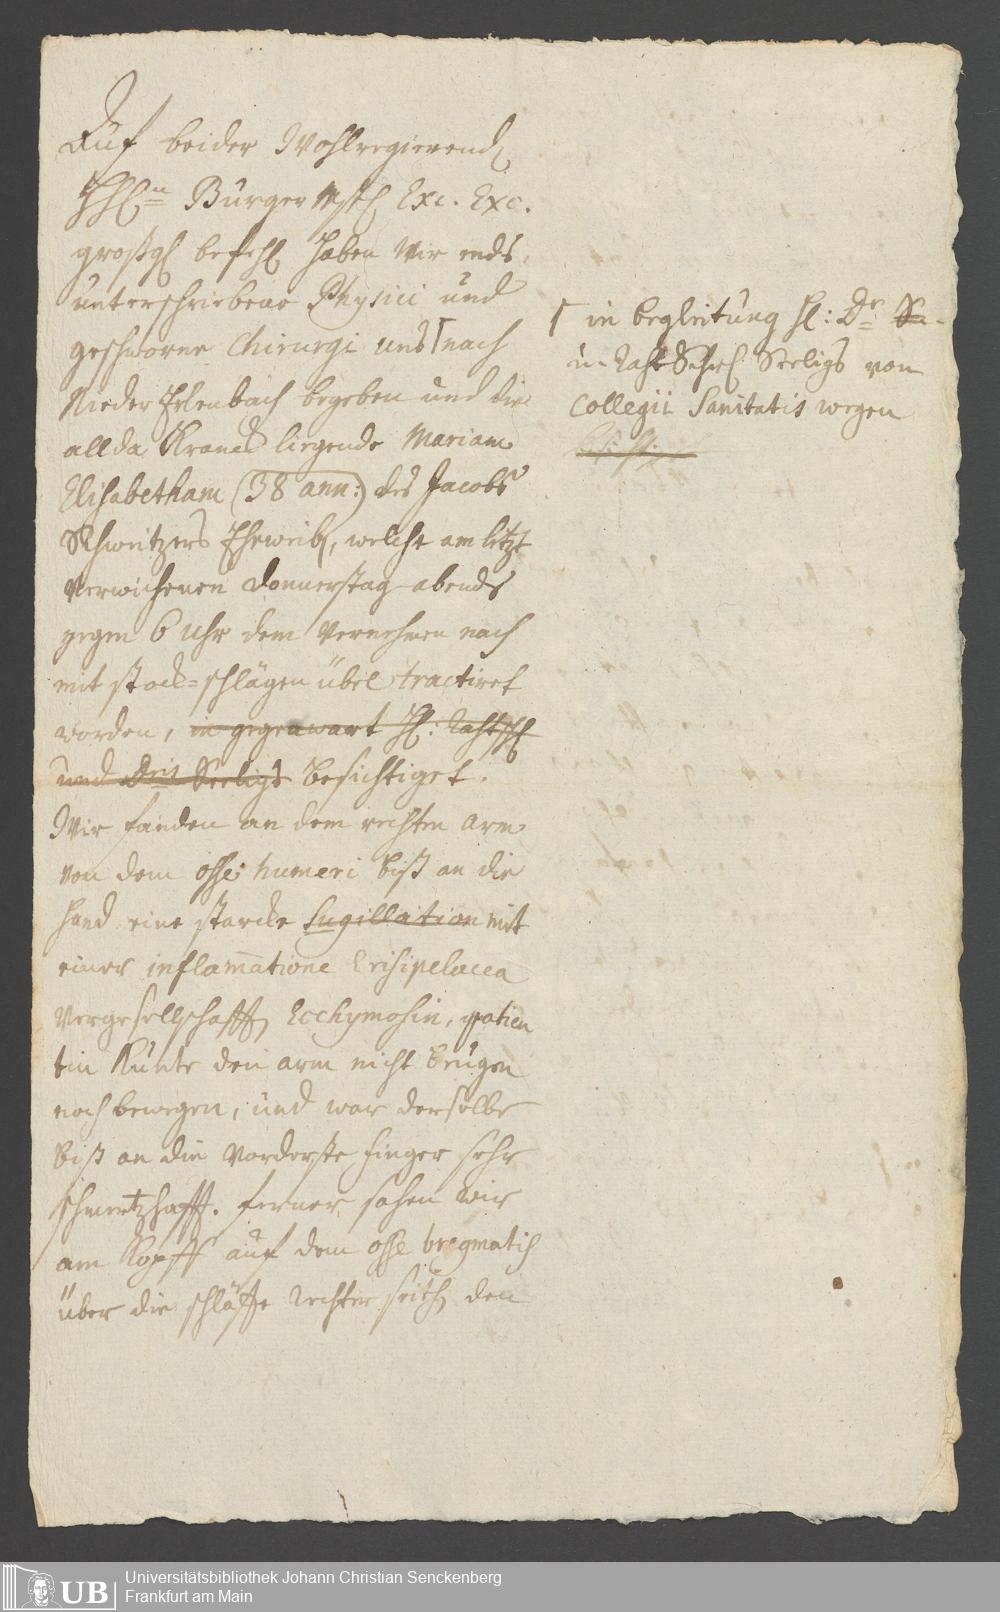 Auf beider Wohlregierend
HH.n Burger Mstr Exc. Exc.
großg. befehl haben Wir ends
unterschriebene Physici und
geschworne Chirurgi uns ⌈ nach
Nieder Erlenbach begeben und die
allda Kranck liegende Mariam
Elisabetham (38 ann:) des Jacobs
Schweitzers Eheweib, welche am letzt
verwichenen Donnerstag abends
gegen 6 Uhr dem Vernehmen nach
mit stock=schlägen übel tractiret
worden, in gegenwart H: Rahtsch
und Dris Seeligs besichtiget.
Wir fanden an dem rechten Arm
von dem osse humeri biß an die
hand eine starcke Sugillation mit
einer inflam̅atione Erisipelacea
Vergesellschafft Ecchymosin, patien
tin Kunte den arm nicht beugen
noch bewegen, und war derselbe
biß an die Vorderste finger sehr
schmertzhafft. ferner sahen wir
am Kopff auf dem osse bregmatis
über die schläffe rechter seith den
⌈ in begleitung H: Dr. Se-
u. Raht Schr. Seeligs von
Collegii Sanitatis wegen
UB
Universitätsbibliothek Johann Christian Senckenberg
Frankfurt am Main